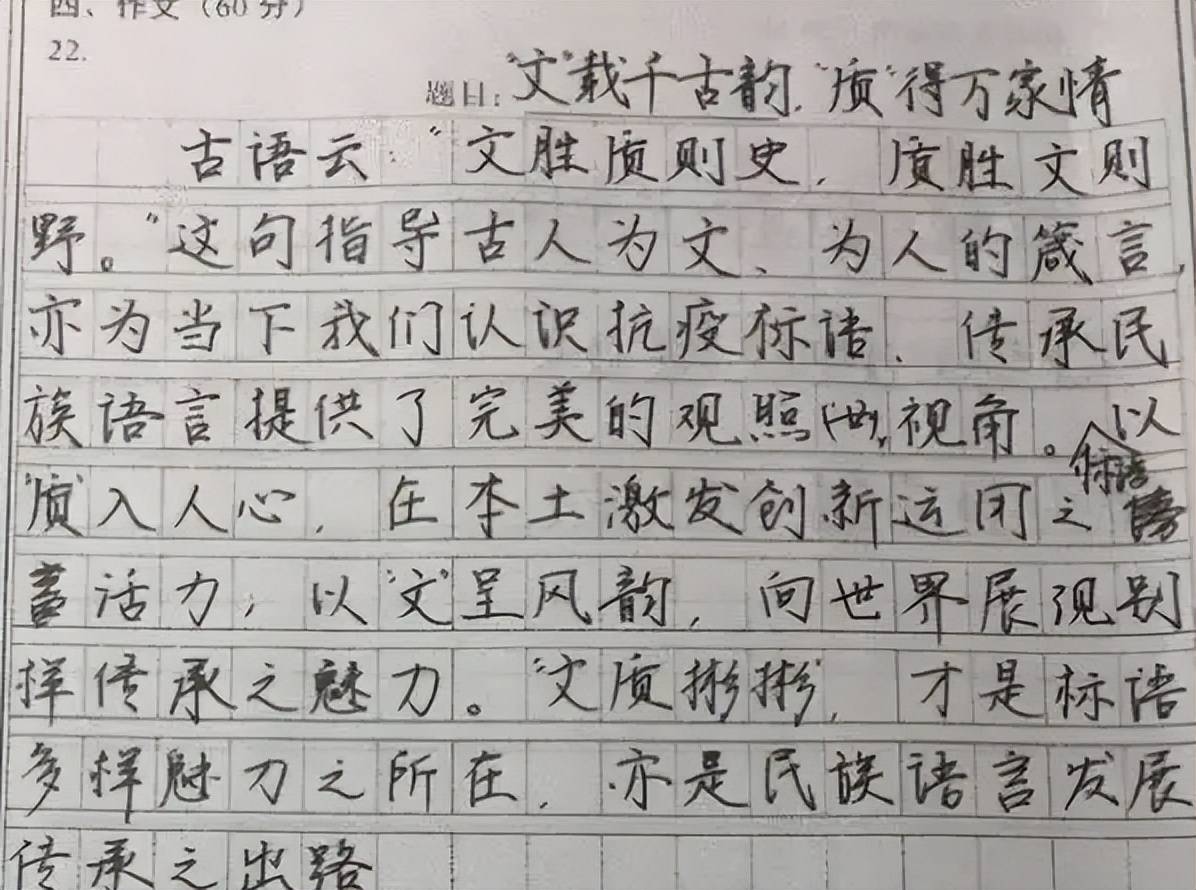 四、作文（60分）
22.
题目："文"载千古韵，"质"得万家情
古语云："文胜质则史，质胜文则
野。"这句指导古人为文、为人的箴言，
亦为当下我们认识抗疫标语、传承民
族语言提供了完美的观照视角。标语以
"质"入人心，在本土激发创新运用之
活力；以"文"呈风韵，向世界展现别
样传承之魅力。"文质彬彬"，才是标语
多样魅力之所在，亦是民族语言发展
传承之出路